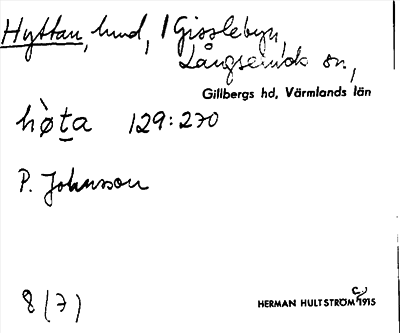 Hyttan, lund, / Gisslebyn,
Långseruds sn,
Gillbergs hd, Värmlands län
hø̀ta 129:270
P. Johnson
8 (7)
HERMAN HULTSTRÖM 1915